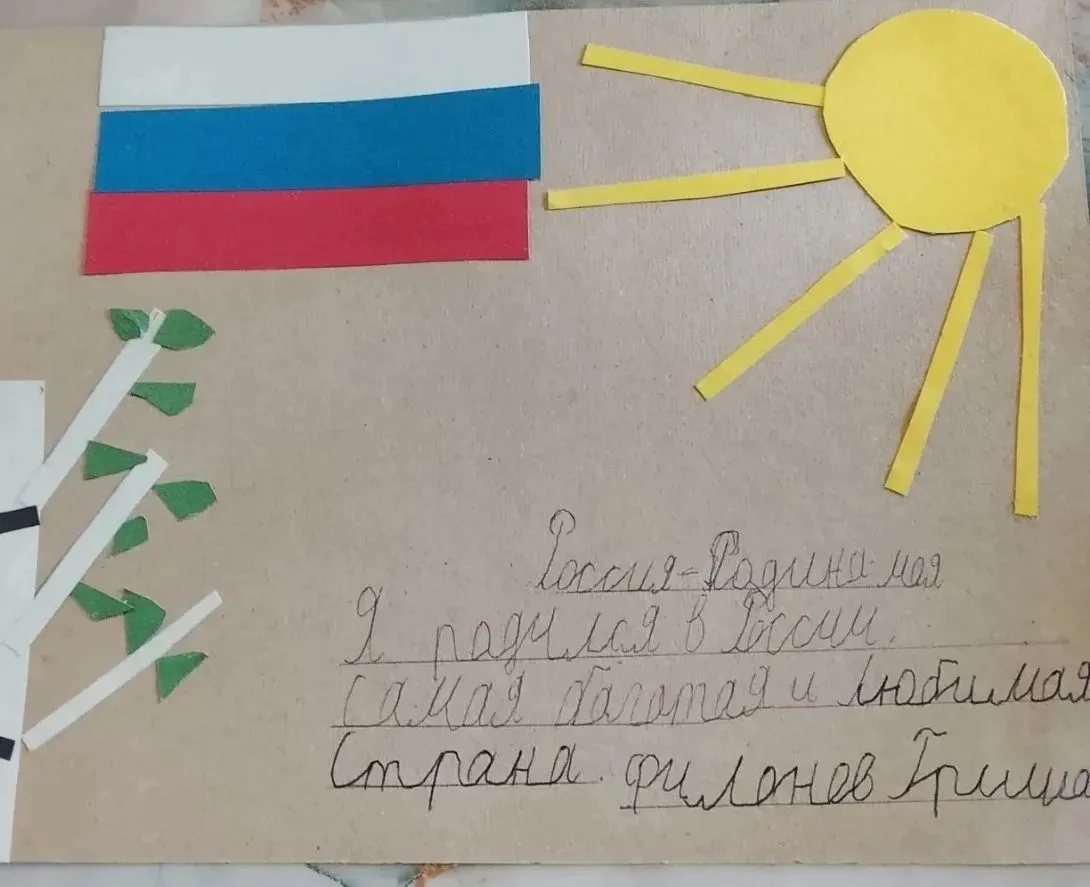 Россия-Родина моя
Я радился в России.
самая багатая и любимая
Страна. Филонов Гриша